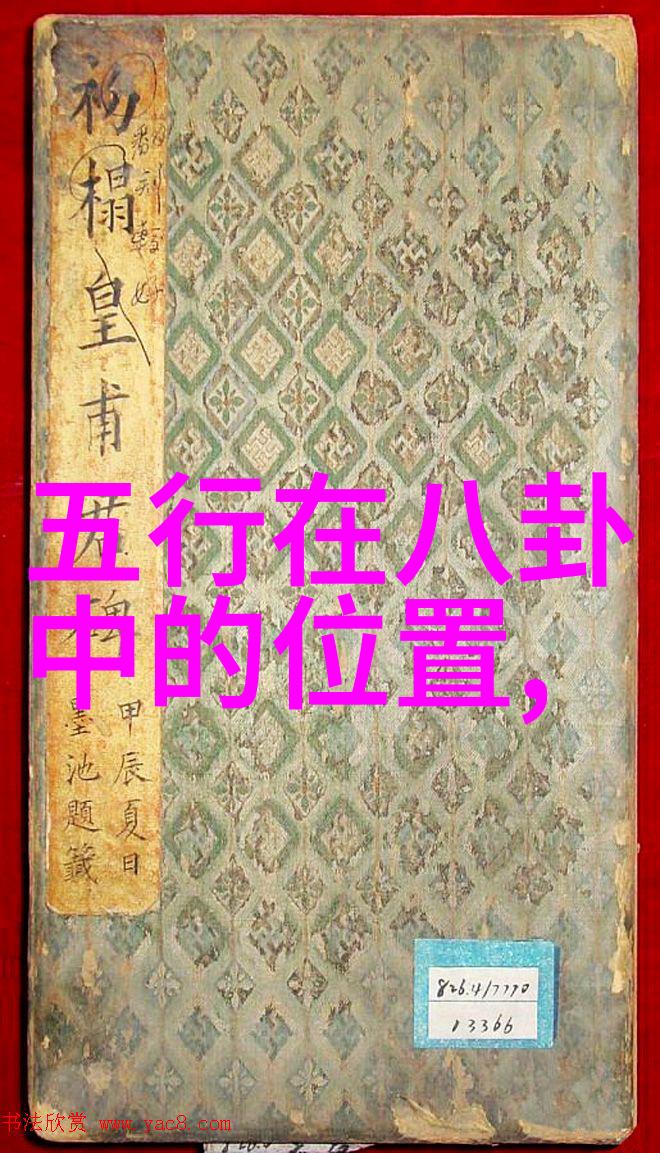 初榻皇甫君碑
翻刻較好
甲辰夏日
墨池題籤
五行在八卦
中的位置,
826.4/7770
13366
书法欣赏 www.yac8.com